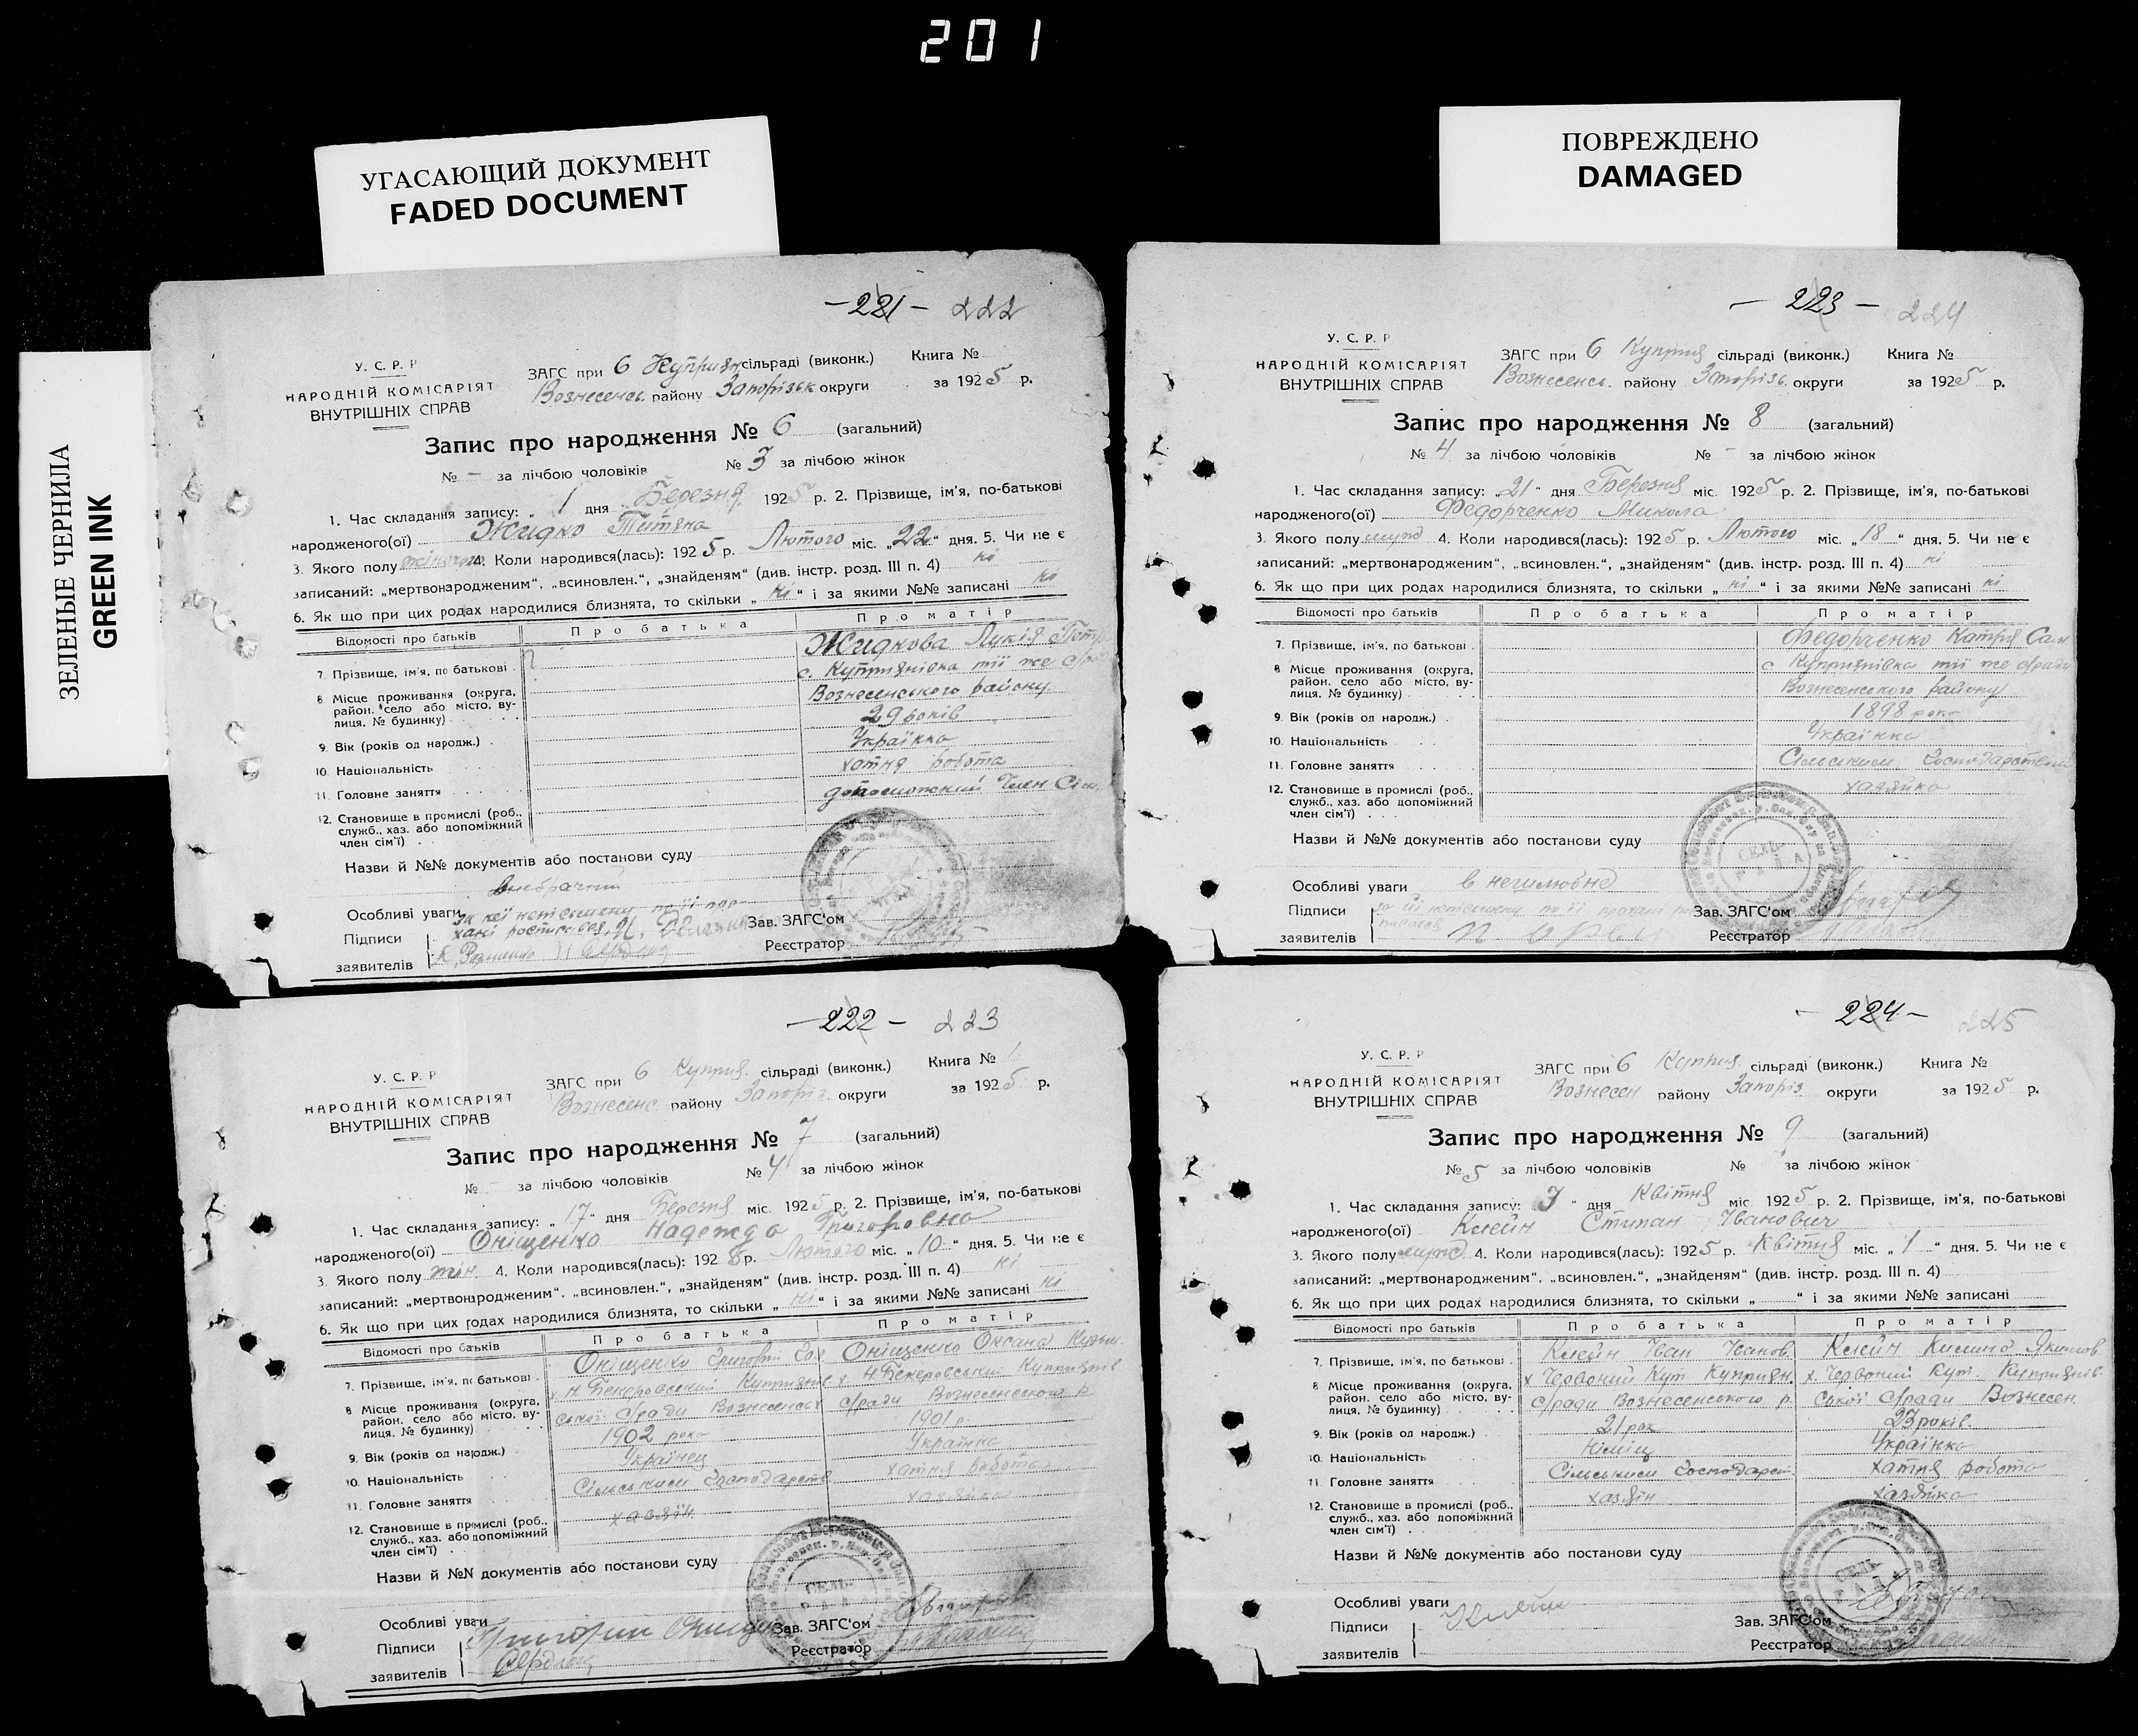 201
УГАСАЮЩИЙ ДОКУМЕНТ
FADED DOCUMENT
ПОВРЕЖДЕНО
DAMAGED
ЗЕЛЕНЫЕ ЧЕРНИЛА
GREEN INK
— 221 — 222
У. С. Р. Р
НАРОДНІЙ КОМІСАРІЯТ
ВНУТРІШНІХ СПРАВ
ЗАГС при 6 Куприян сільраді (виконк.) Книга №
Вознесенсь. району Запорізьк округи за 1925 р.
Запис про народження № 6 (загальний)
№ - за лічбою чоловіків № 3 за лічбою жінок
1. Час складання запису: „ 1 дня Березня 1925 р. 2. Прізвище, ім'я, по-батькові
народженого(ої) Жидко Титяна
3. Якого полу жіночого 4. Коли народився(лась): 1925 р. Лютого міс. „22" дня. 5. Чи не є
записаний: „мертвонародженим", „всиновлен.", „знайденям" (див. інстр. розд. III п. 4) ні
6. Як що при цих родах народилися близнята, то скільки „ ні " і за якими №№ записані ні
Відомості про батьків Про батька Про матір
7. Прізвище, ім'я, по батькові . Жидкова Лукія Петр
8 Місце проживання (округа, с. Куприянівка тії же с/ради
район. село або місто, ву- Вознесенського району
лиця, № будинку)
9. Вік (років од народж.) . 29 років
10. Національність Українка
11. Головне заняття хатня робота
12. Становище в промислі (роб., Член Сім
служб., хаз. або допоміжний
член сім'ї)
Назви й №№ документів або постанови суду
Особливі уваги
Підписи
заявителів
Зав. ЗАГС'ом
Реєстратор
— 223 — 224
У. С. Р. Р
НАРОДНІЙ КОМІСАРІЯТ
ВНУТРІШНІХ СПРАВ
ЗАГС при 6 Куприя сільраді (виконк.) Книга №
Вознесенсь. району Запорізь. округи за 1925 р.
Запис про народження № 8 (загальний)
№ 4 за лічбою чоловіків № - за лічбою жінок
1. Час складання запису: „21" дня Березня міс. 1925 р. 2. Прізвище, ім'я, по-батькові
народженого(ої) Федорченко Микола
3. Якого полу мужс 4. Коли народився(лась): 1925 р. Лютого міс. „18" дня. 5. Чи не є
записаний: „мертвонародженим", „всиновлен.", „знайденям" (див. інстр. розд. III п. 4) ні
6. Як що при цих родах народилися близнята, то скільки „ ні " і за якими №№ записані ні
Відомості про батьків Про батька Про матір
7. Прізвище, ім'я, по батькові . Федорченко Катря Сам
8 Місце проживання (округа, с Куприянівка тії же с/ради
район. село або місто, ву- Вознесенського району
лиця, № будинку)
9. Вік (років од народж.) . 1898 рока
10. Національність Українка
11. Головне заняття Сільським Господарством
12. Становище в промислі (роб., хазяйка
служб., хаз. або допоміжний
член сім'ї)
СЕЛЬ-
РАДА
Назви й №№ документів або постанови суду
Особливі уваги
Підписи
заявителів
Зав. ЗАГС'ом
Реєстратор
— 222 — 223
У. С. Р. Р
НАРОДНІЙ КОМІСАРІЯТ
ВНУТРІШНІХ СПРАВ
ЗАГС при 6 Куприя. сільраді (виконк.) Книга № 1
Вознесенс. району Запоріз. округи за 1925 р.
Запис про народження № 7 (загальний)
№ за лічбою чоловіків № 4 за лічбою жінок
1. Час складання запису: „17" дня Березня міс. 1925 р. 2. Прізвище, ім'я, по-батькові
народженого(ої) Оніщенко Надежда Григоровна
3. Якого полу жін 4. Коли народився(лась): 1925 р. Лютого міс. „10" дня. 5. Чи не є
записаний: „мертвонародженим", „всиновлен.", „знайденям" (див. інстр. розд. III п. 4) ні
6. Як що при цих родах народилися близнята, то скільки „ ні " і за якими №№ записані ні
Відомості про батьків Про батька Про матір
7. Прізвище, ім'я, по батькові . Оніщенко Григорій Оніщенко Оксана Кузьм.
8 Місце проживання (округа, х. Н.Бекеровський Куприянів х. Н.Бекеровський Куприянів
район. село або місто, ву- ської с/ради Вознесенськ с/ради Вознесенського р.
лиця, № будинку)
9. Вік (років од народж.) . 1902 рока 1901 р.
10. Національність Українец Українка
11. Головне заняття Сільським Господарств хатня робота
12. Становище в промислі (роб., хазяін хазяйка
служб., хаз. або допоміжний
член сім'ї)
СЕЛЬ-
РАДА
Назви й №№ документів або постанови суду
Особливі уваги
Підписи Григорий Онищенко
заявителів
Зав. ЗАГС'ом
Реєстратор
— 224 — 225
У. С. Р. Р
НАРОДНІЙ КОМІСАРІЯТ
ВНУТРІШНІХ СПРАВ
ЗАГС при 6 Куприя. сільраді (виконк.) Книга №
Вознесен району Запоріз. округи за 1925 р.
Запис про народження № 9 (загальний)
№ 5 за лічбою чоловіків № за лічбою жінок
1. Час складання запису: 3 " дня Квітня міс. 1925 р. 2. Прізвище, ім'я, по-батькові
народженого(ої) Клейн Стипан Іванович
3. Якого полу мужс 4. Коли народився(лась): 1925 р. Квітня міс. „ 1 " дня. 5. Чи не є
записаний: „мертвонародженим", „всиновлен.", „знайденям" (див. інстр. розд. III п. 4)
6. Як що при цих родах народилися близнята, то скільки „ " і за якими №№ записані
Відомості про батьків Про батька Про матір
7. Прізвище, ім'я, по батькові . Клейн Іван Іванов. Клейн Килина Якимов.
8 Місце проживання (округа, х Червоний Кут Куприян х. Червоний Кут Куприянів.
район. село або місто, ву- с/ради Вознесенського р. ської с/ради Вознесен.
лиця, № будинку)
9. Вік (років од народж.) . 21 рок 23 років.
10. Національність Німіц Українка
11. Головне заняття Сільським Господарст. хатня робота
12. Становище в промислі (роб., хазяін хазяйка
служб., хаз. або допоміжний
член сім'ї)
СЕЛЬ-
РАДА
Назви й №№ документів або постанови суду
Особливі уваги
Підписи Клейн
заявителів
Зав. ЗАГС'ом
Реєстратор